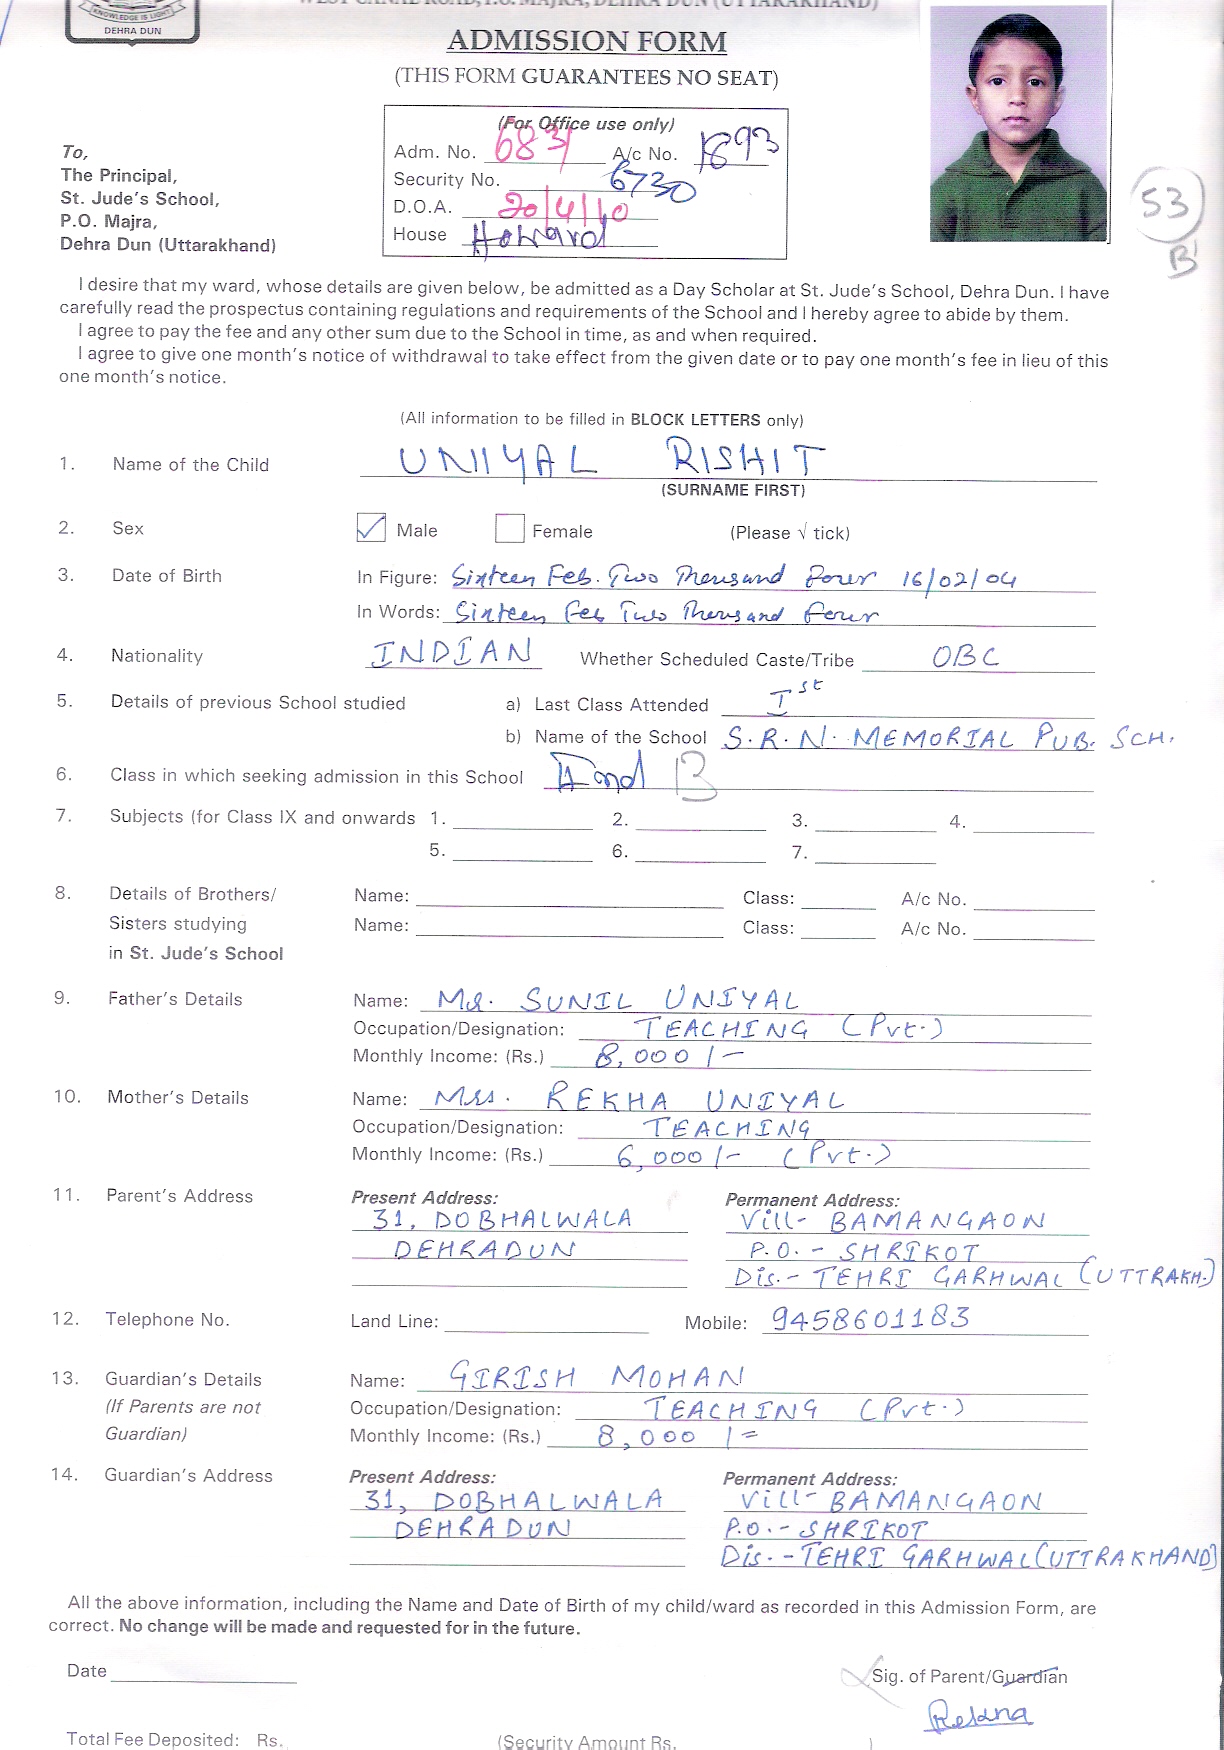 WEST CANAL ROAD, P.O. MAJRA, DEHRA DUN (UTTARAKHAND)
KNOWLEDGE IS LIGHT
DEHRA DUN
ADMISSION FORM
(THIS FORM GUARANTEES NO SEAT)
(For Office use only)
Adm. No. 6831 A/c No. 1893
Security No. 6730
D.O.A. 20/4/10
House Howard
53
B
To,
The Principal,
St. Jude's School,
P.O. Majra,
Dehra Dun (Uttarakhand)
I desire that my ward, whose details are given below, be admitted as a Day Scholar at St. Jude's School, Dehra Dun. I have
carefully read the prospectus containing regulations and requirements of the School and I hereby agree to abide by them.
I agree to pay the fee and any other sum due to the School in time, as and when required.
I agree to give one month's notice of withdrawal to take effect from the given date or to pay one month's fee in lieu of this
one month's notice.
(All information to be filled in BLOCK LETTERS only)
1. Name of the Child UNIYAL RISHIT
(SURNAME FIRST)
2. Sex ✓ Male Female (Please √ tick)
3. Date of Birth In Figure: Sixteen Feb. Two Thousand Four 16/02/04
In Words: Sixteen Feb Two Thousand Four
4. Nationality INDIAN Whether Scheduled Caste/Tribe OBC
5. Details of previous School studied a) Last Class Attended Ist
b) Name of the School S.R.N. MEMORIAL PUB. SCH.
6. Class in which seeking admission in this School IInd B
7. Subjects (for Class IX and onwards 1. 2. 3. 4.
5. 6. 7.
8. Details of Brothers/ Name: Class: A/c No.
Sisters studying Name: Class: A/c No.
in St. Jude's School
9. Father's Details Name: Mr. SUNIL UNIYAL
Occupation/Designation: TEACHING (Pvt.)
Monthly Income: (Rs.) 8,000/-
10. Mother's Details Name: Mrs. REKHA UNIYAL
Occupation/Designation: TEACHING
Monthly Income: (Rs.) 6,000/- (Pvt.)
11. Parent's Address Present Address: Permanent Address:
31, DOBHALWALA Vill- BAMANGAON
DEHRADUN P.O. - SHRIKOT
Dis.- TEHRI GARHWAL (UTTRAKH.)
12. Telephone No. Land Line: Mobile: 9458601183
13. Guardian's Details Name: GIRISH MOHAN
(If Parents are not Occupation/Designation: TEACHING (Pvt.)
Guardian) Monthly Income: (Rs.) 8,000/=
14. Guardian's Address Present Address: Permanent Address:
31, DOBHALWALA Vill- BAMANGAON
DEHRADUN P.O.- SHRIKOT
Dis. - TEHRI GARHWAL (UTTRAKHAND)
All the above information, including the Name and Date of Birth of my child/ward as recorded in this Admission Form, are
correct. No change will be made and requested for in the future.
Date Sig. of Parent/Guardian
Rekha
Total Fee Deposited: Rs. (Security Amount Rs. )